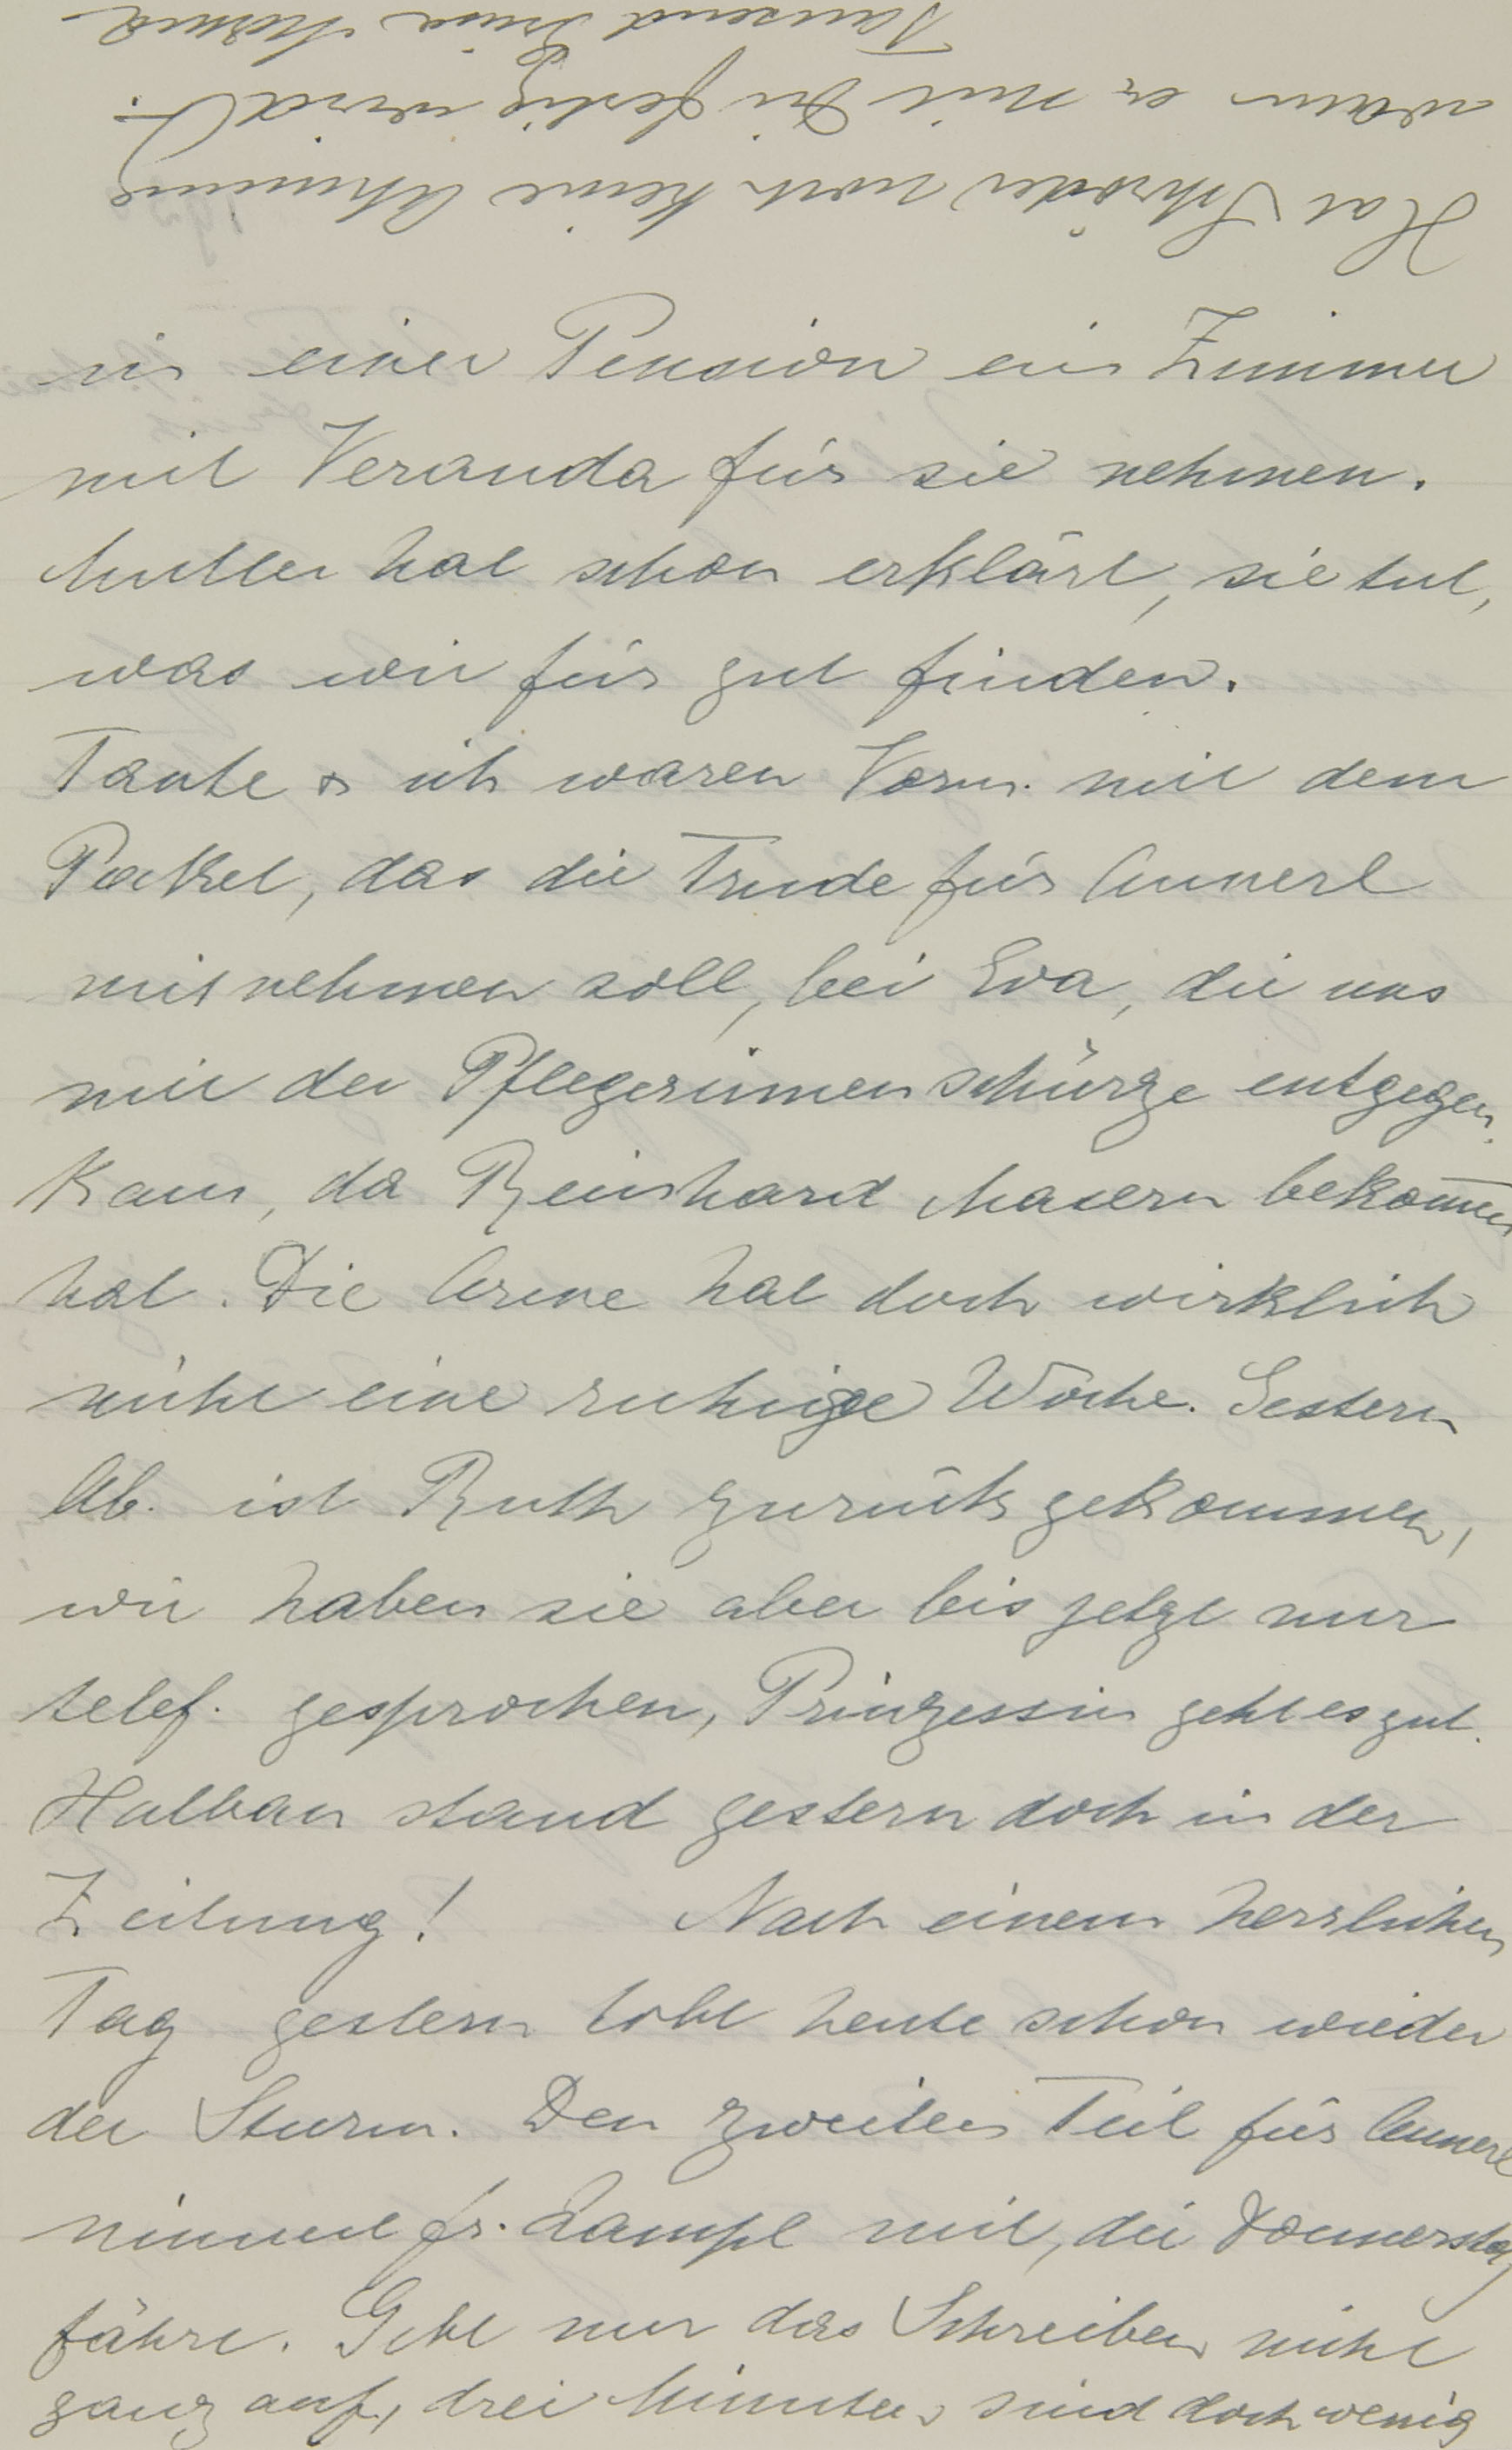 in einer Pension ein Zimmer
mit Veranda für sie nehmen.
Mutter hat schon erklärt, sie tut,
was wir für gut finden.
Tante & ich waren Vorm. mit dem
Packel, das die Trude für Annerl
mitnehmen soll, bei Eva, die uns
mit der Pflegerinnenschürze entgegen
kam, da Reinhard Masern bekommen
hat. Die Arme hat doch wirklich
nicht eine ruhige Woche. Gestern
Ab. ist Ruth zurückgekommen,
wir haben sie aber bis jetzt nur
telef. gesprochen, Prinzessin geht es gut.
Halban stand gestern doch in der
Zeitung! Nach einem herrlichen
Tag gestern tobt heute schon wieder
der Sturm. Den zweiten Teil für Annerl
nimmt Fr. Lampl mit, die Donnerstag
fährt. Gebt nur das Schreiben nicht
ganz auf, drei Minuten sind doch wenig
Hat Schröder noch keine Ahnung
wann er mit Dir fertig wird?
Tausend